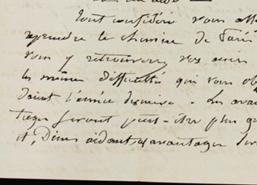 Tout considéré vous all
reprendre le chemin de Paris
vous y retrouverez vos
les mêmes difficultés qui vous ob
l'année dernière - Les avan
seront peut-être plus gr
et, Dieu aidant, avantages